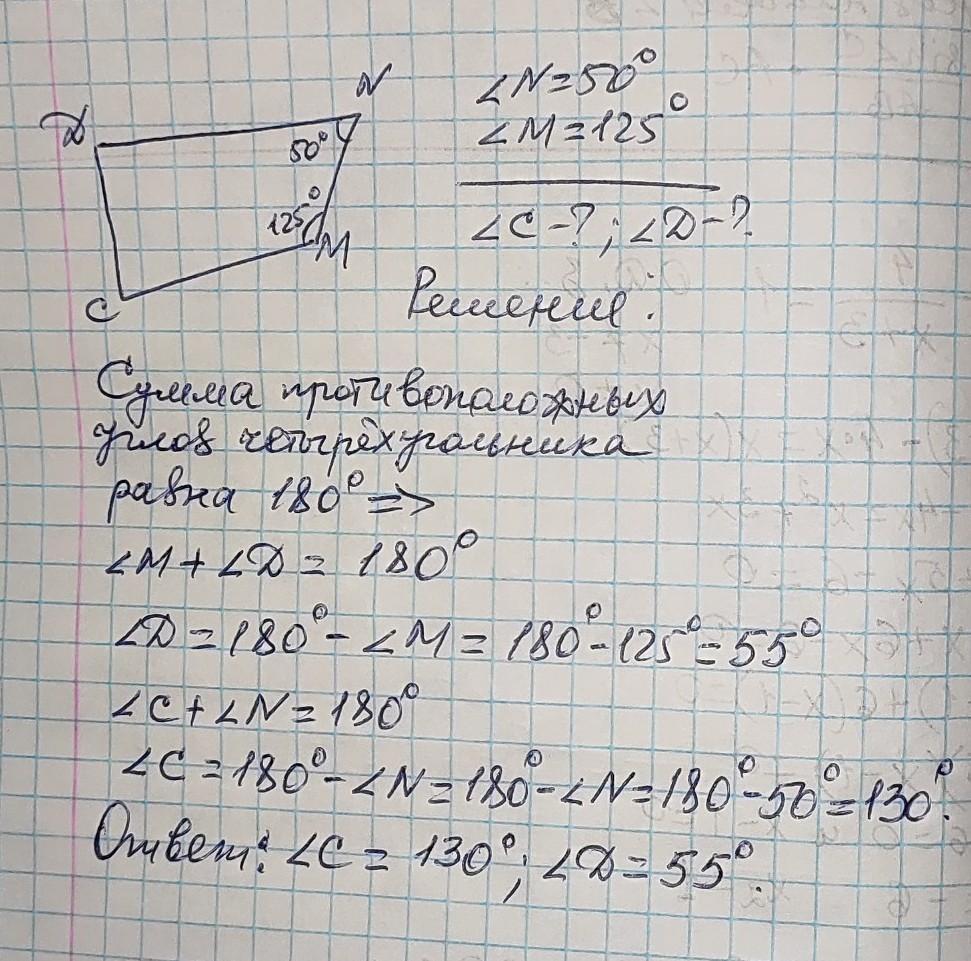 N
∠N=50°
D
50°
∠M=125°
125°
M
∠C-?; ∠D-?
C
Решение.
Сумма противоположных
углов четырёхугольника
равна 180° =>
∠M+∠D = 180°
∠D = 180° - ∠M = 180° - 125° = 55°
∠C+∠N=180°
∠C = 180° - ∠N = 180° - ∠N = 180° - 50° = 130°.
Ответ: ∠C = 130°; ∠D = 55°.